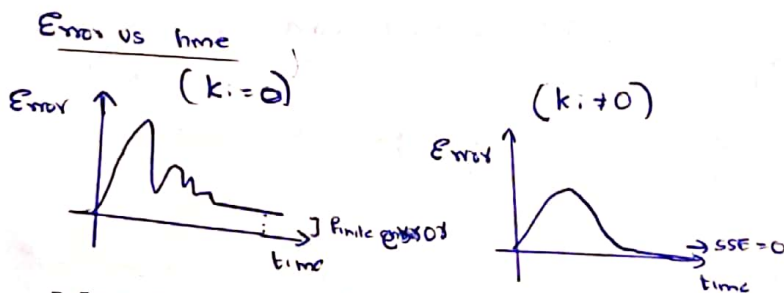 Error vs time
(ki=0)
Error
] finite error
time
(ki≠0)
Error
→ SSE = 0
time